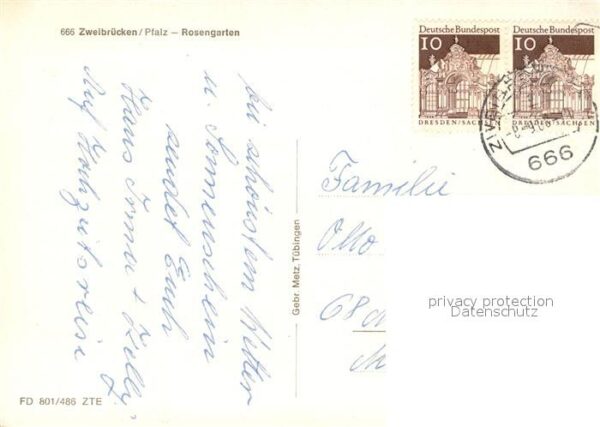 666 Zweibrücken/Pfalz — Rosengarten
Deutsche Bundespost
10
DRESDEN/SACHSEN
Deutsche Bundespost
10
DRESDEN/SACHSEN
666
bei schönstem Wetter
u. Sonnenschein
sendet Euch
Hans Irma +
Auf Hochzeitsreise
Gebr. Metz, Tübingen
Familie
Otto
68
privacy protection
Datenschutz
FD 801/486 ZTE